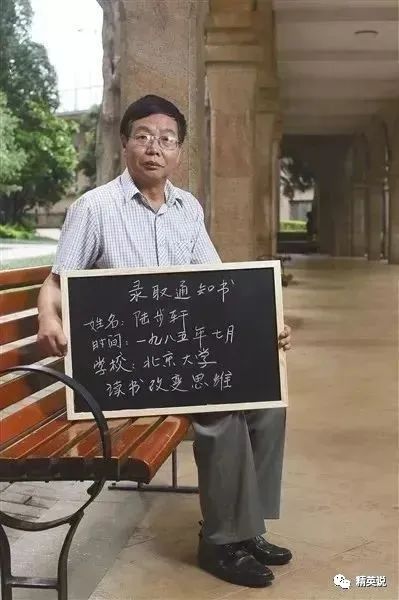 录取通知书
姓名：陆步轩
时间：一九八五年七月
学校：北京大学
读书改变思维
精英说